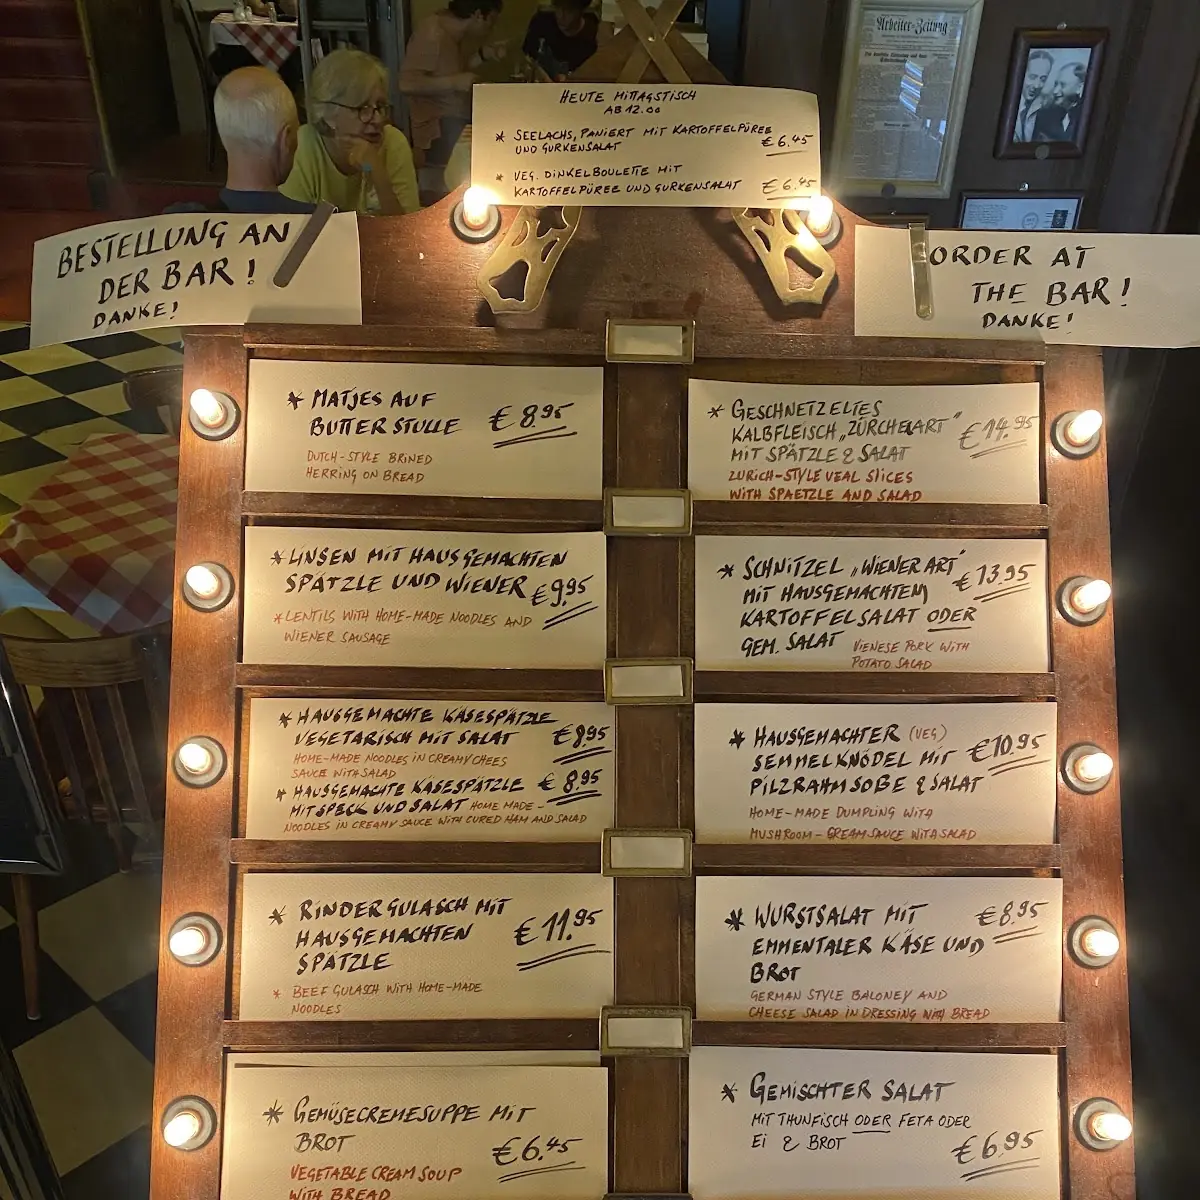 Arbeiter-Zeitung
HEUTE MITTAGSTISCH
AB 12.00
* SEELACHS, PANIERT MIT KARTOFFELPÜREE
UND GURKENSALAT € 6.45
* VEG. DINKELBOULETTE MIT
KARTOFFELPÜREE UND GURKENSALAT € 6.45
BESTELLUNG AN
DER BAR!
DANKE!
ORDER AT
THE BAR!
DANKE!
* MATJES AUF
BUTTERSTULLE € 8.95
DUTCH-STYLE BRINED
HERRING ON BREAD
* LINSEN MIT HAUSGEMACHTEN
SPÄTZLE UND WIENER € 9.95
* LENTILS WITH HOME-MADE NOODLES AND
WIENER SAUSAGE
* HAUSGEMACHTE KÄSESPÄTZLE
VEGETARISCH MIT SALAT € 8.95
HOME-MADE NOODLES IN CREAMY CHEES
SAUCE WITH SALAD
* HAUSGEMACHTE KÄSESPÄTZLE € 8.95
MIT SPECK UND SALAT HOME MADE-
NOODLES IN CREAMY SAUCE WITH CURED HAM AND SALAD
* RINDERGULASCH MIT
HAUSGEMACHTEN € 11.95
SPÄTZLE
* BEEF GULASCH WITH HOME-MADE
NOODLES
* GEMÜSECREMESUPPE MIT
BROT € 6.45
VEGETABLE CREAM SOUP
WITH BREAD
* GESCHNETZELTES
KALBFLEISCH „ZÜRCHERART“ € 14.95
MIT SPÄTZLE & SALAT
ZURICH-STYLE VEAL SLICES
WITH SPAETZLE AND SALAD
* SCHNITZEL „WIENER ART“ € 13.95
MIT HAUSGEMACHTEM
KARTOFFELSALAT ODER
GEM. SALAT VIENESE PORK WITH
POTATO SALAD
* HAUSGEMACHTER (VEG)
SEMMELKNÖDEL MIT € 10.95
PILZRAHMSOßE & SALAT
HOME-MADE DUMPLING WITH
MUSHROOM-CREAM SAUCE WITH SALAD
* WURSTSALAT MIT € 8.95
EMMENTALER KÄSE UND
BROT
GERMAN STYLE BALONEY AND
CHEESE SALAD IN DRESSING WITH BREAD
* GEMISCHTER SALAT
MIT THUNFISCH ODER FETA ODER
EI & BROT € 6.95